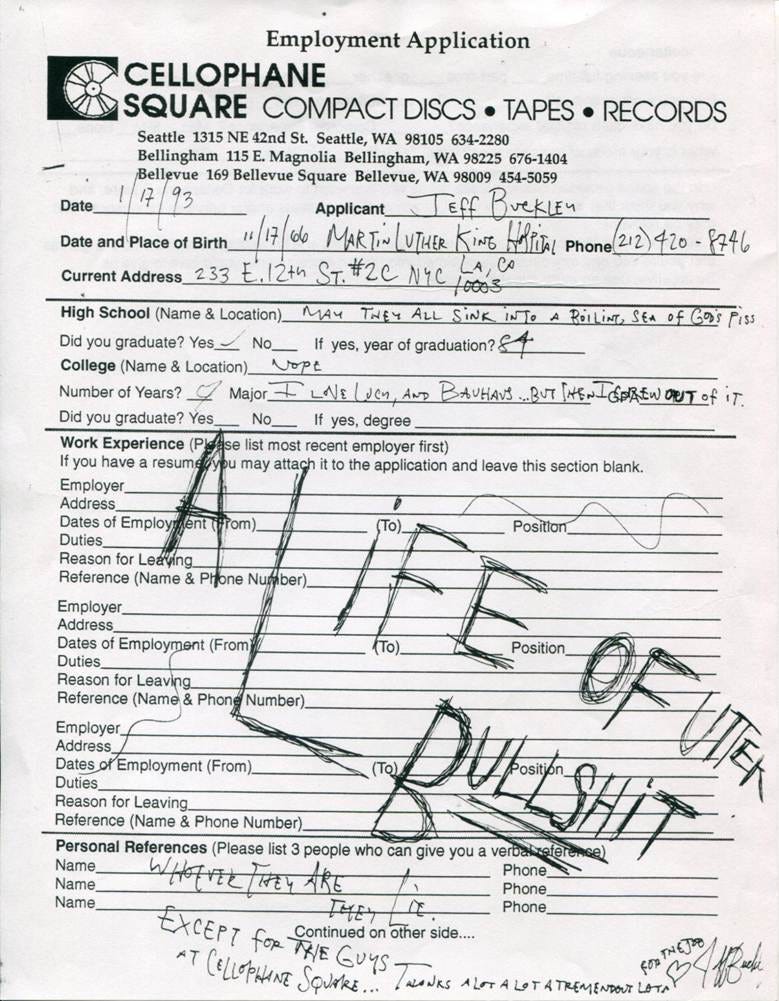 Employment Application
CELLOPHANE
SQUARE COMPACT DISCS • TAPES • RECORDS
Seattle 1315 NE 42nd St. Seattle, WA 98105 634-2280
Bellingham 115 E. Magnolia Bellingham, WA 98225 676-1404
Bellevue 169 Bellevue Square Bellevue, WA 98009 454-5059
Date 1/17/93 Applicant JEFF BUCKLEY
Date and Place of Birth 11/17/66 MARTIN LUTHER KING HOSPITAL Phone (212) 420-8746
LA, CA
Current Address 233 E. 12th ST. #2C NYC 10003
High School (Name & Location) MAY THEY ALL SINK INTO A BOILING SEA OF GOD'S PISS
Did you graduate? Yes ✓ No If yes, year of graduation? 84
College (Name & Location) NOPE
Number of Years? Major I LOVE LUCY, AND BAUHAUS...BUT THEN I GREW OUT OF IT.
Did you graduate? Yes No If yes, degree
Work Experience (Please list most recent employer first)
If you have a resume, you may attach it to the application and leave this section blank.
Employer
Address
Dates of Employment (From) (To) Position
Duties
Reason for Leaving
Reference (Name & Phone Number)
Employer
Address
Dates of Employment (From) (To) Position
Duties
Reason for Leaving
Reference (Name & Phone Number)
Employer
Address
Dates of Employment (From) (To) Position
Duties
Reason for Leaving
Reference (Name & Phone Number)
A LIFE OF UTTER
BULLSHIT
Personal References (Please list 3 people who can give you a verbal reference)
Name WHOEVER THEY ARE Phone
Name Phone
Name THEY LIE. Phone
Continued on other side....
EXCEPT FOR THE GUYS
AT CELLOPHANE SQUARE... THANKS A LOT A LOT A TREMENDOUT LOTA
FOR THE JOB
Jeff Buckley